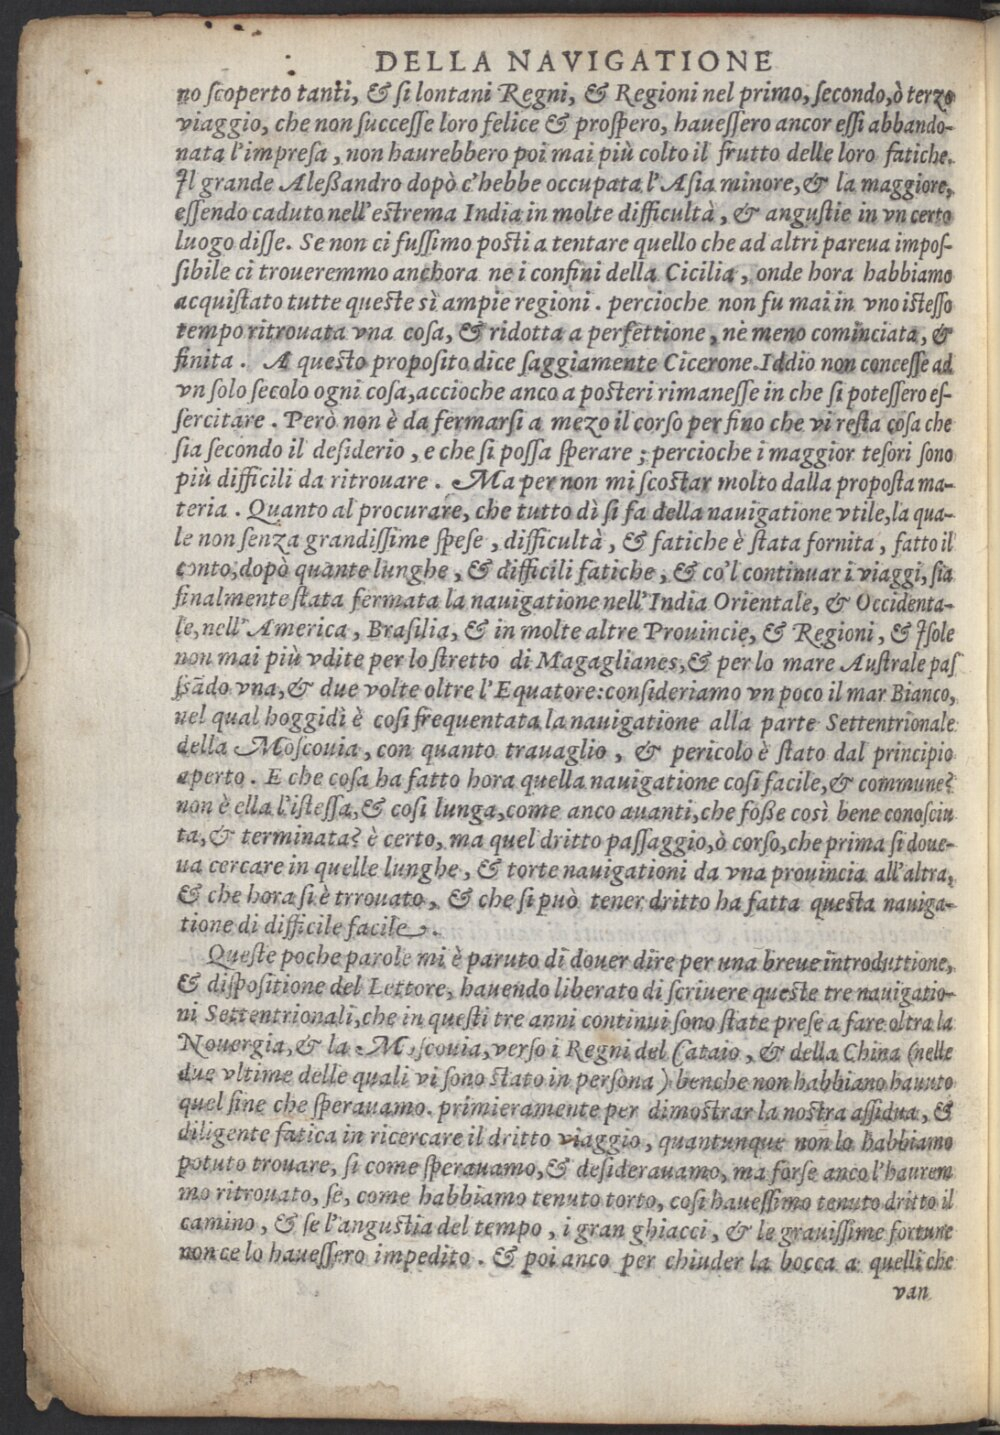 DELLA NAVIGATIONE
no ſcoperto tanti, & ſi lontani Regni, & Regioni nel primo, ſecondo, ò terzo
viaggio, che non ſucceſſe loro felice & proſpero, haueſſero ancor eſſi abbando-
nata l'impreſa, non haurebbero poi mai più colto il frutto delle loro fatiche.
Il grande Aleßandro dopò c'hebbe occupata l'Aſia minore, & la maggiore,
eſſendo caduto nell'estrema India in molte difficultà, & anguſtie in vn certo
luogo diſſe. Se non ci fuſſimo poſti a tentare quello che ad altri pareua impoſ-
ſibile ci troueremmo anchora ne i confini della Cicilia, onde hora habbiamo
acquiſtato tutte queste sì ampie regioni. percioche non fu mai in vno isteſſo
tempo ritrouata vna coſa, & ridotta a perfettione, nè meno cominciata, &
finita. A questo propoſito dice ſaggiamente Cicerone. Iddio non conceſſe ad
vn ſolo ſecolo ogni coſa, accioche anco a posteri rimaneſſe in che ſi poteſſero eſ-
ſercitare. Però non è da fermarſi a mezo il corſo per fino che vi reſta coſa che
ſia ſecondo il deſiderio, e che ſi poſſa ſperare; percioche i maggior teſori ſono
più difficili da ritrouare. Ma per non mi ſcostar molto dalla propoſta ma-
teria. Quanto al procurare, che tutto dì ſi fa della nauigatione vtile, la qua-
le non ſenza grandiſſime ſpeſe, difficultà, & fatiche è ſtata fornita, fatto il
conto, dopò quante lunghe, & difficili fatiche, & co'l continuar i viaggi, ſia
finalmente ſtata fermata la nauigatione nell'India Orientale, & Occidenta-
le, nell'America, Braſilia, & in molte altre Prouincie, & Regioni, & Iſole
non mai più vdite per lo ſtretto di Magaglianes, & per lo mare Auſtrale paſ
ſsãdo vna, & due volte oltre l'Equatore: conſideriamo vn poco il mar Bianco,
nel qual hoggidì è coſi frequentata la nauigatione alla parte Settentrionale
della Moſcouia, con quanto trauaglio, & pericolo è ſtato dal principio
aperto. E che coſa ha fatto hora quella nauigatione coſi facile, & commune?
non è ella l'iſteſſa, & coſi lunga, come anco auanti, che foße così bene conoſciu
ta, & terminata? è certo, ma quel dritto paſſaggio, ò corſo, che prima ſi doue-
ua cercare in quelle lunghe, & torte nauigationi da vna prouincia all'altra,
& che hora ſi è trrouato, & che ſi può tener dritto ha fatta questa nauiga-
tione di difficile facile.
Queſte poche parole mi è paruto di douer dire per una breue introduttione,
& diſpoſitione del Lettore, hauendo liberato di ſcriuere queſte tre nauigatio-
ni Settentrionali, che in queſti tre anni continui ſono ſtate preſe a fare oltra la
Nouergia, & la Moſcouia, verſo i Regni del Cataio, & della China (nelle
due vltime delle quali vi ſono ſtato in perſona) benche non habbiano hauuto
quel fine che ſperauamo. primieramente per dimostrar la nostra aſſidua, &
diligente fatica in ricercare il dritto viaggio, quantunque non lo habbiamo
potuto trouare, ſi come ſperauamo, & deſiderauamo, ma forſe anco l'haurem
mo ritrouato, ſe, come habbiamo tenuto torto, coſi haueſſimo tenuto dritto il
camino, & ſe l'anguſtia del tempo, i gran ghiacci, & le grauiſſime fortune
non ce lo haueſſero impedito. & poi anco per chiuder la bocca a quelli che
van